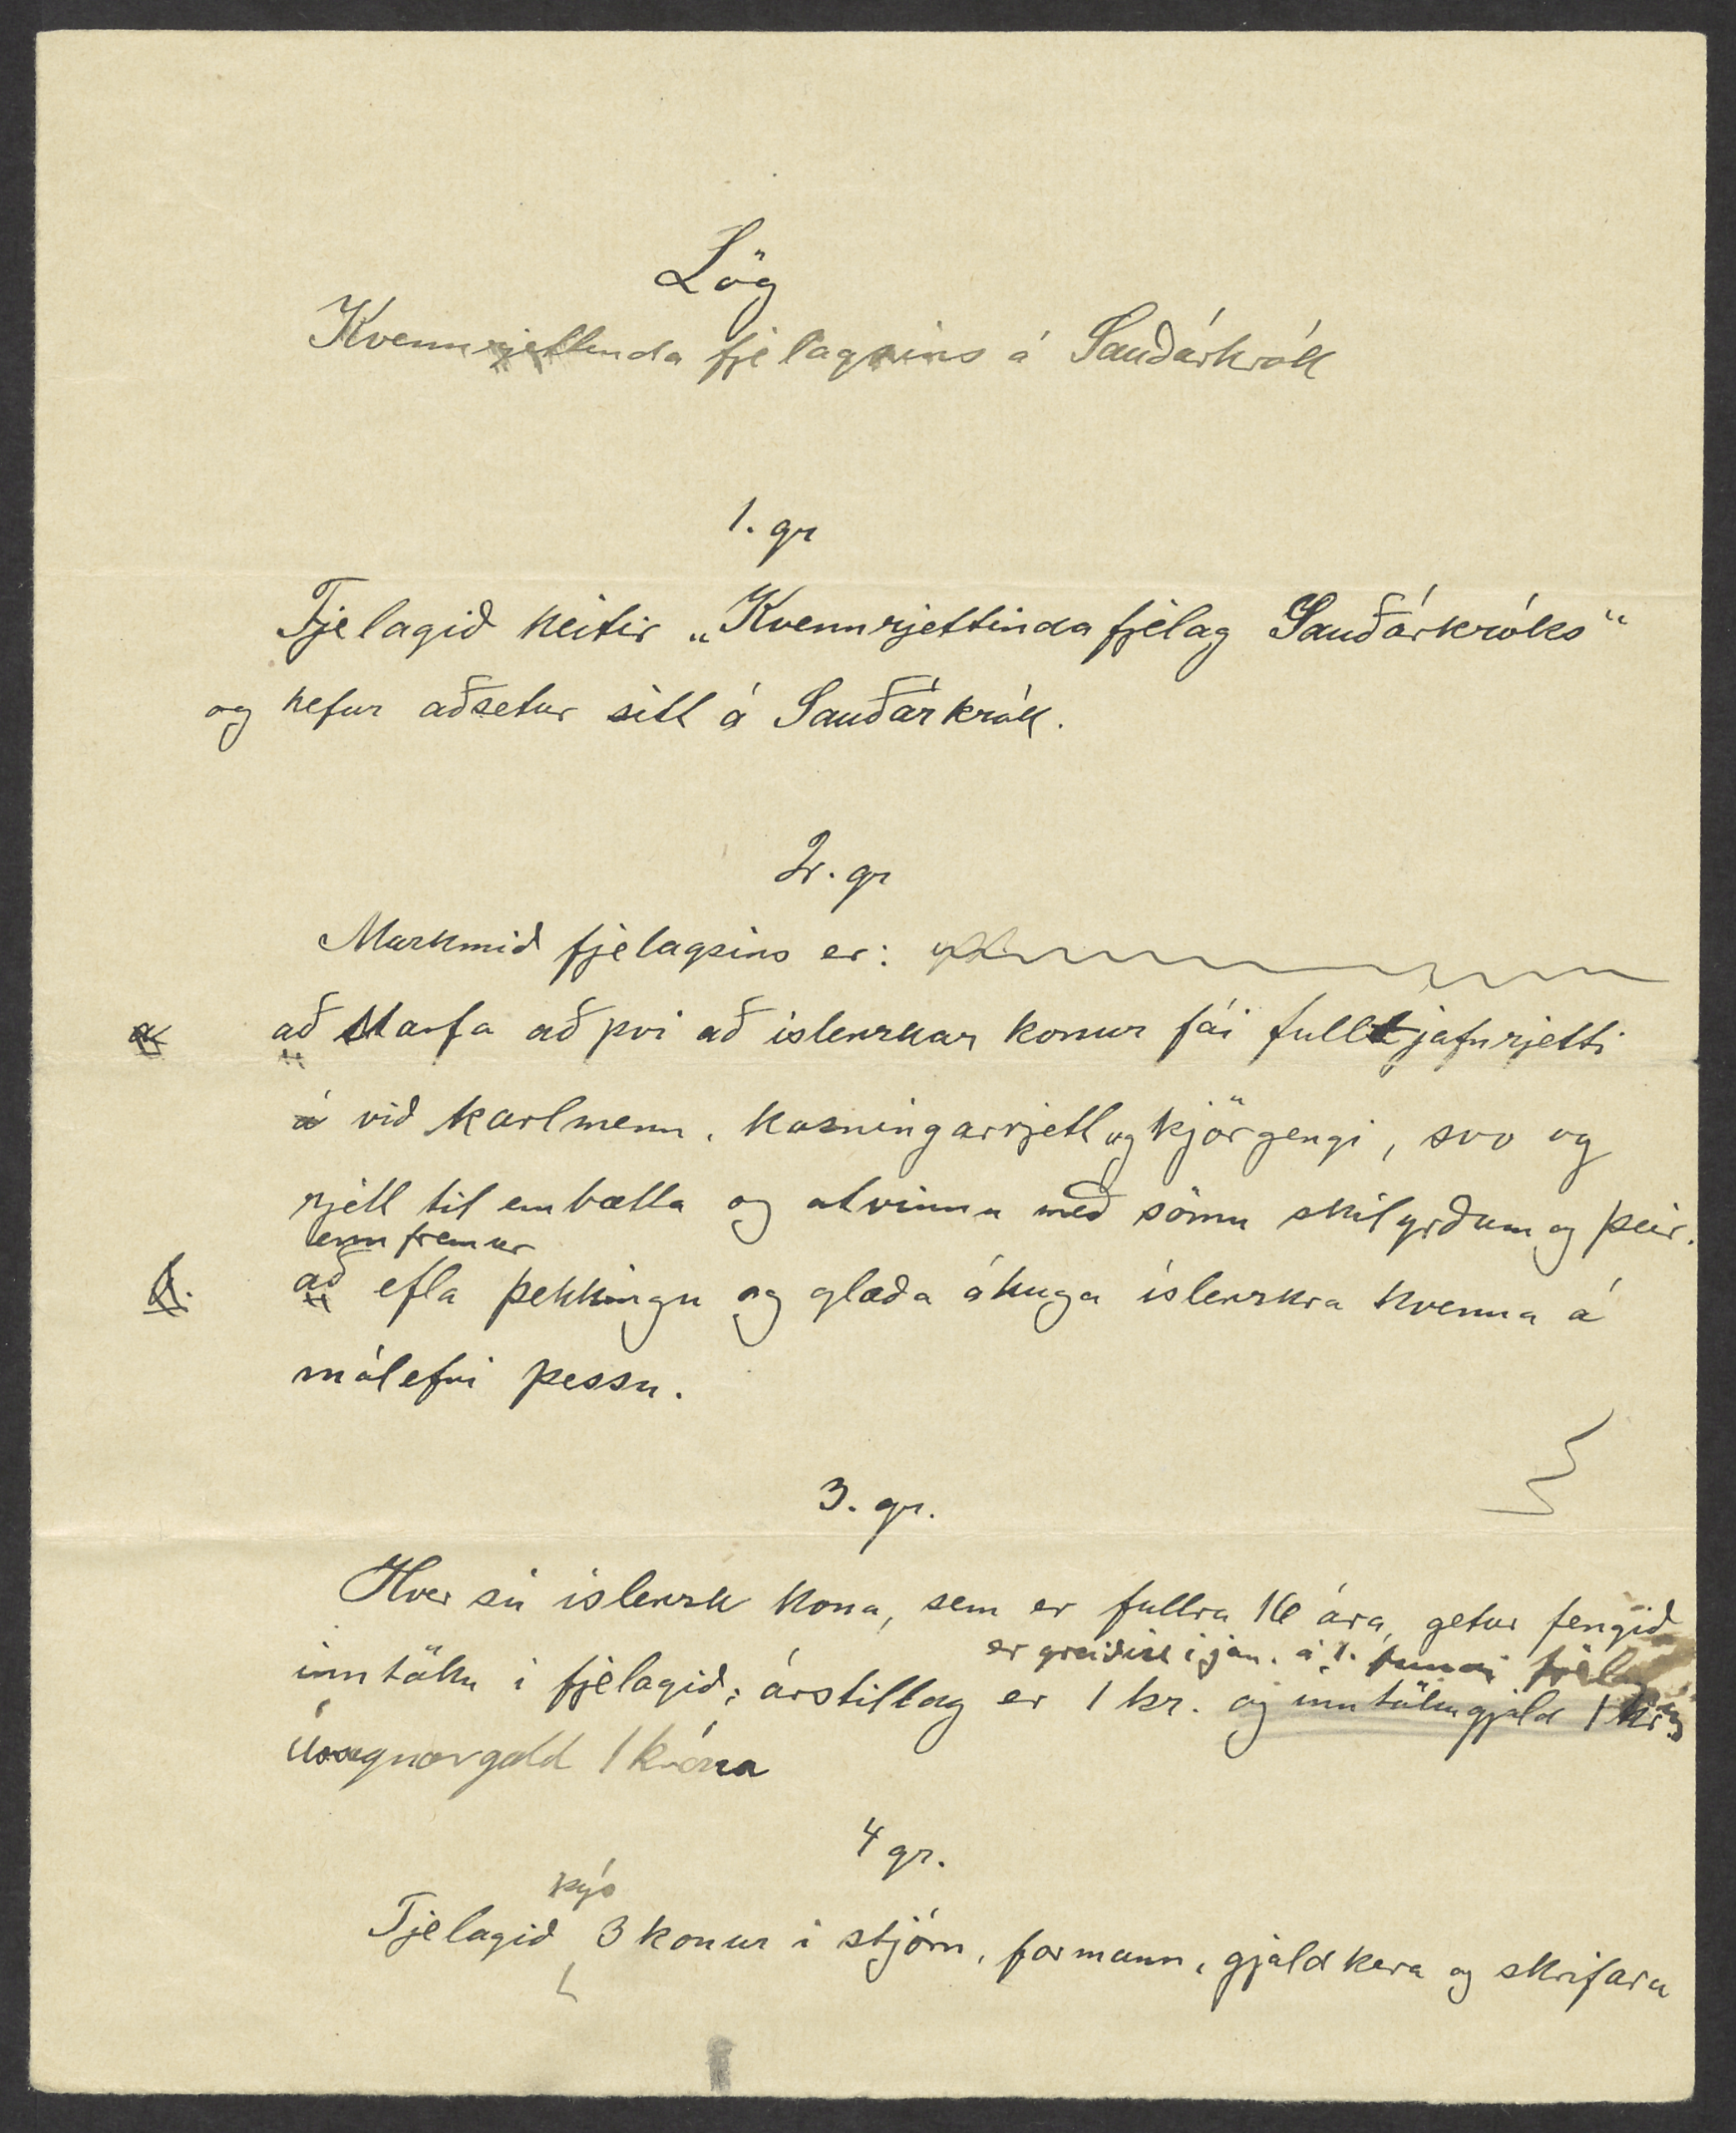 Lög
Kvennrjettinda fjelagsins á Sauðárkrók
1. gr
Fjelagið heitir „Kvennrjettindafjelag Sauðárkróks“
og hefur aðsetur sitt á Sauðárkrók.
2. gr
Markmið fjelagsins er:
a að starfa að því að íslenzkar konur fái fullt jafnrjetti
á við karlmenn, kosningarrjett og kjörgengi, svo og
rjett til embætta og atvinnu með sömu skilyrðum og þeir.
enn fremur
b. að efla þekkingu og glæða áhuga íslenzkra kvenna á
málefni þessu.
3. gr.
Hver sú íslenzk kona, sem er fullra 16 ára, getur fengið
er greiðist í jan. á 1. fundi fjel
inntöku í fjelagið; árstillag er 1 kr. og inntökugjald 1 kr.
Úrsagnargald 1 króna
4 gr.
kýs
Fjelagið 3 konur í stjórn, formann, gjaldkera og skrifara